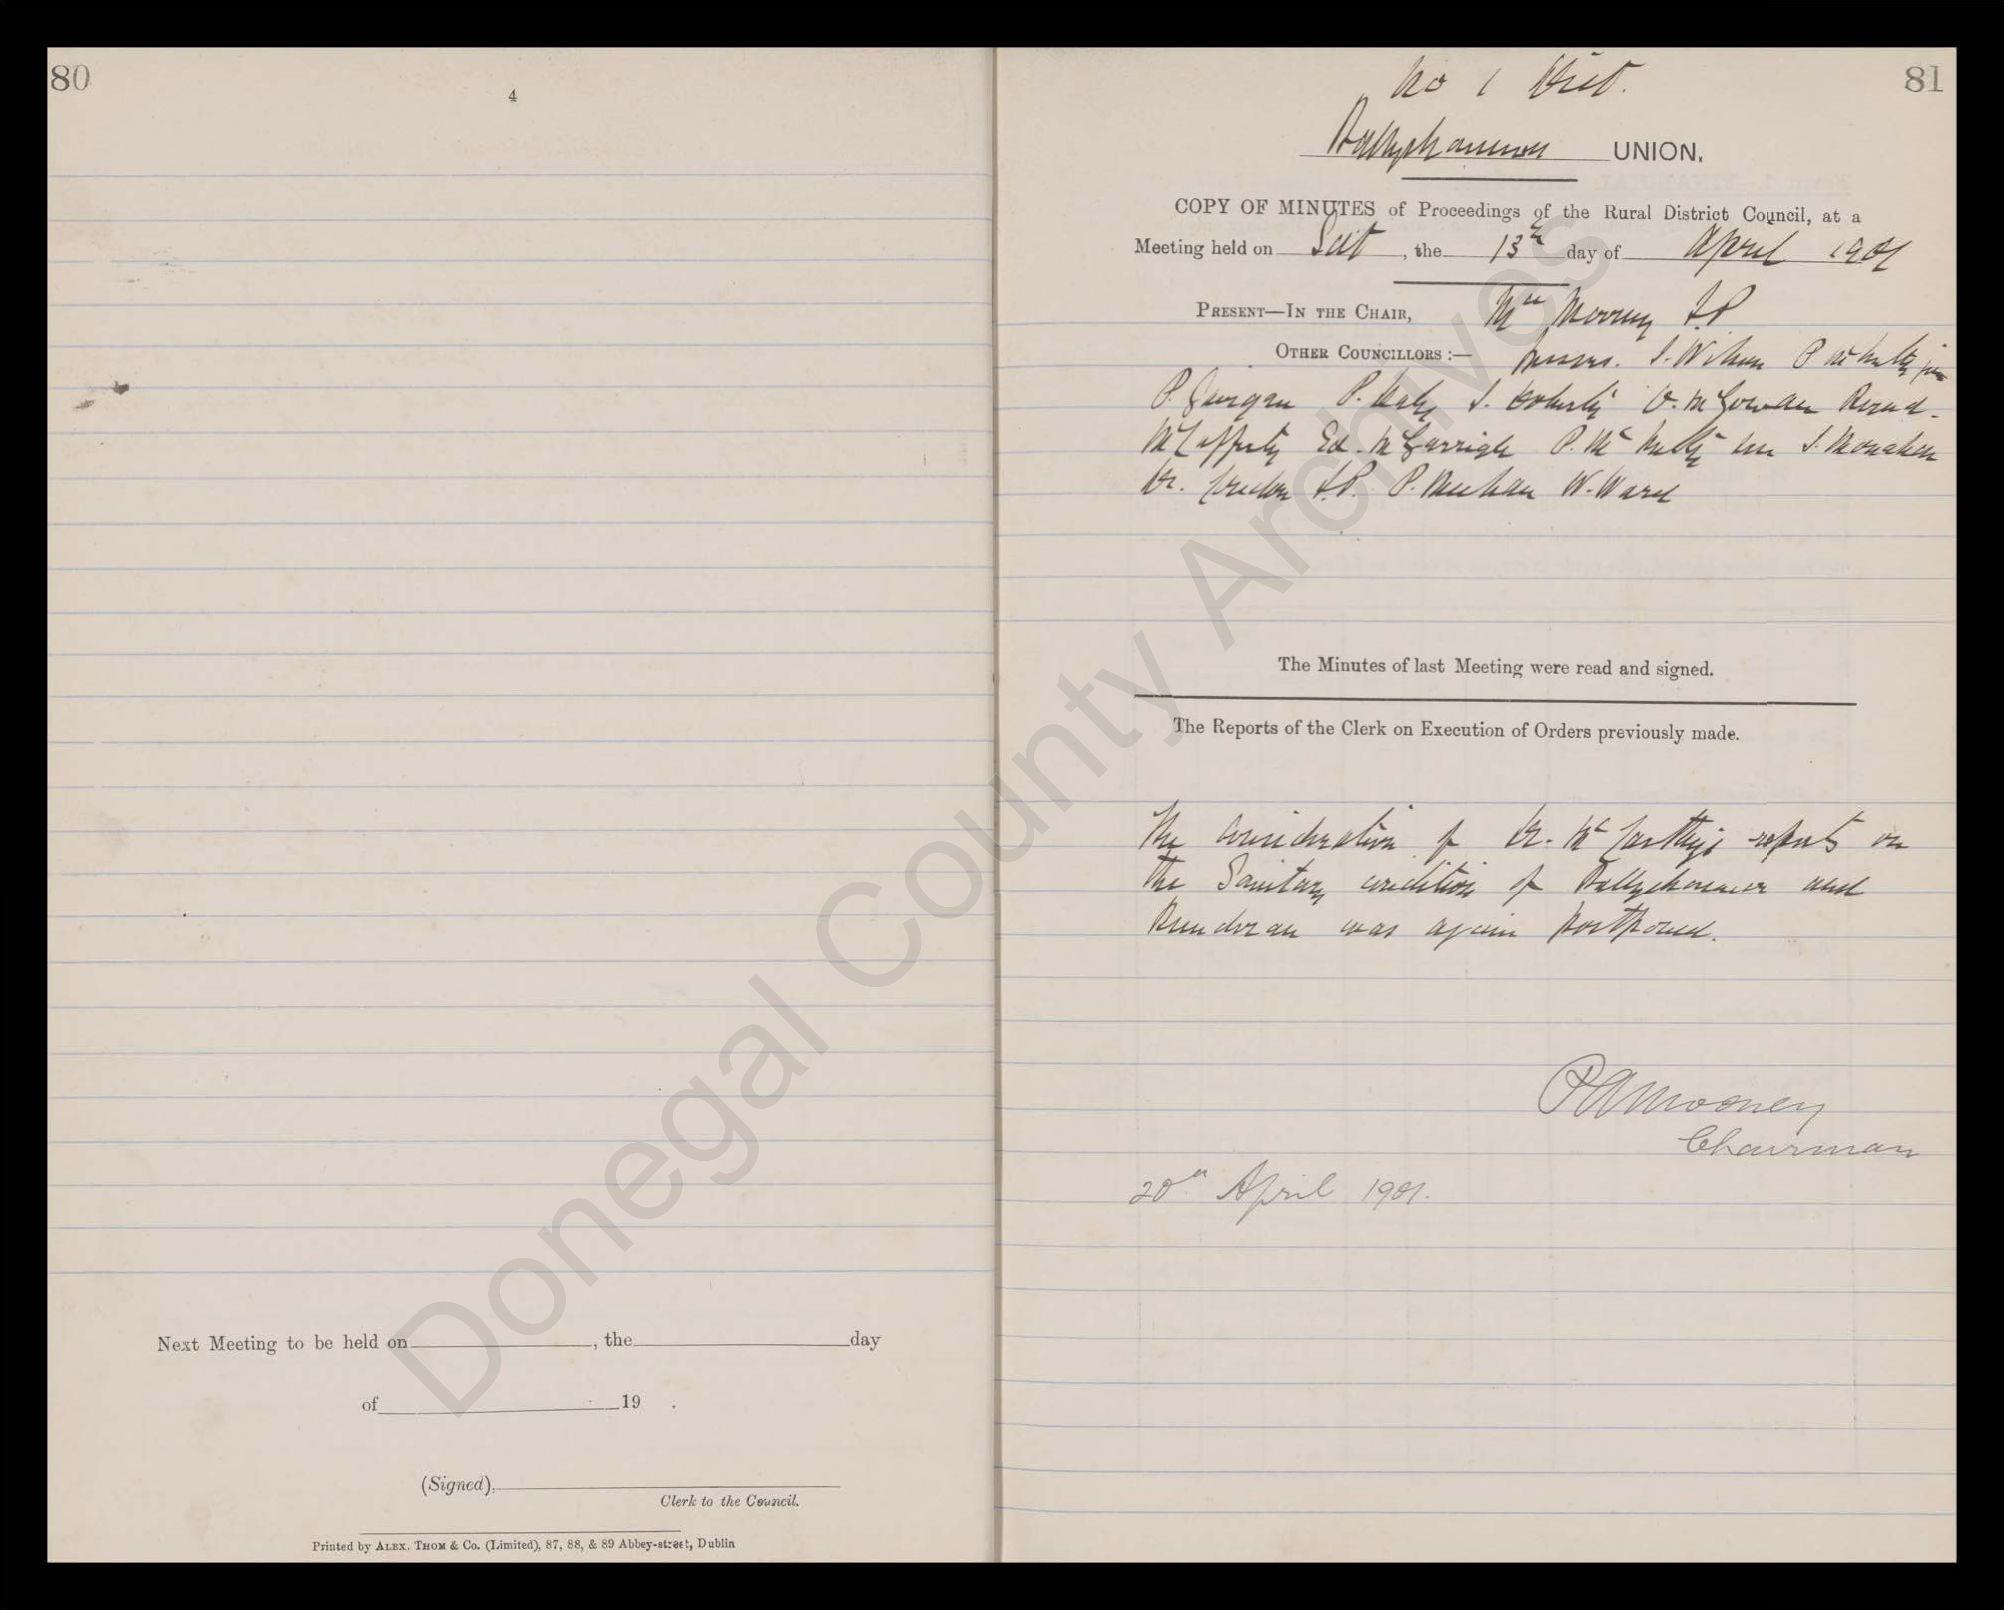 80
4
Next Meeting to be held on , the day
of 19 .
(Signed),
Clerk to the Council.
Printed by ALEX. THOM & Co. (Limited), 87, 88, & 89 Abbey-street, Dublin
81
No 1 Dist.
Ballyshannon UNION.
COPY OF MINUTES of Proceedings of the Rural District Council, at a
Meeting held on Sat , the 13th day of April 1901
PRESENT—IN THE CHAIR, Mr Mooney J.P
OTHER COUNCILLORS :— Messrs. J. Wilson P McNulty jun
P. Gavigan P. Daly J. Doherty O. McGowan Bernd.
McCafferty Ed. McGarrigle P. McNulty sen J. Monahan
Dr. Condon J.P. P. Meehan W. Ward
The Minutes of last Meeting were read and signed.
The Reports of the Clerk on Execution of Orders previously made.
The consideration of Dr. McCarthy's reports on
the Sanitary condition of Ballyshannon and
Bundoran was again postponed.
P A Mooney
Chairman
20th April 1901.
Donegal County Archives